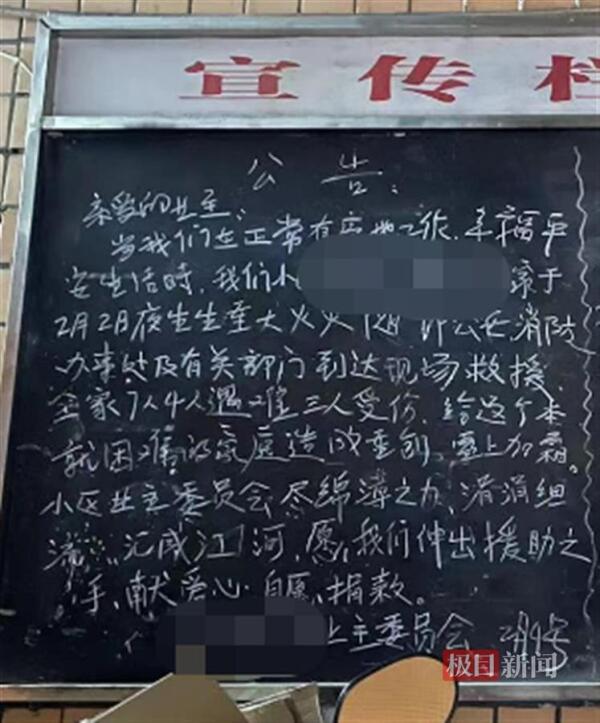 宣传栏
公告:
亲爱的业主、
当我们在正常有序地工作、幸福平
安生活时,我们小 家于
2月2日夜生生重大火灾 公安消防
办事处及有关部门到达现场救援,
全家7人4人遇难三人受伤,给这个本
就困难的家庭造成重创,雪上加霜。
小区业主委员会尽绵薄之力、涓涓细
流,汇成江河,愿我们伸出援助之
手,献爱心自愿捐款。
业主委员会 2月4号
极目新闻